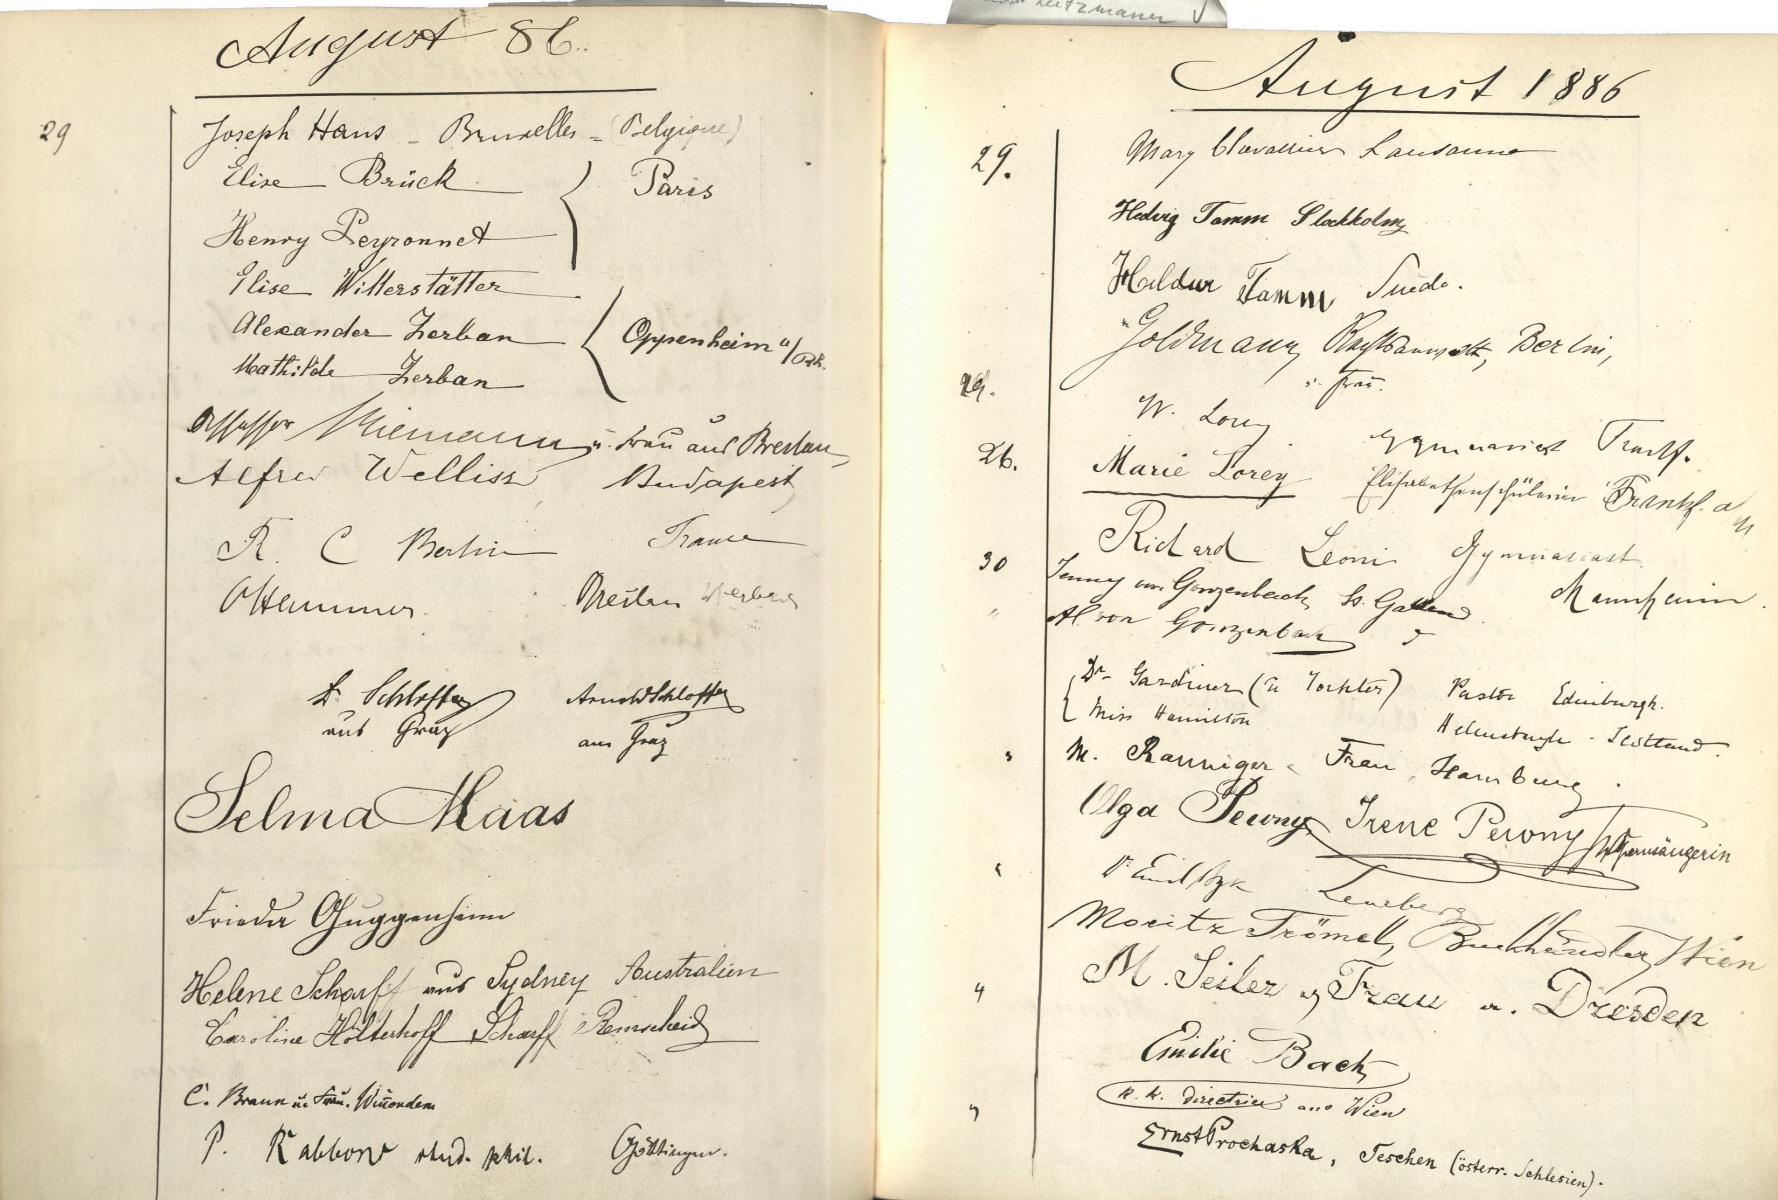 August 86.
29 Joseph Hans - Bruxelles - (Belgique)
Elise Brück
Paris
Henry Peyronnet
Elise Witterstätter
Alexander Zerban
Oppenheim a/Rh.
Mathilde Zerban
Assessor Niemann u. Frau aus Breslau
Alfred Welliss Budapest
R. C Bertin France
Breslau
Dr Schlosser Arnold Schlosser
aus Graz aus Graz
Selma Maas
Frieda Guggenheim
Helene Scharff aus Sydney Australien
Caroline Hölterhoff Scharff Remscheid
C. Braun u. Frau. Winonden
P. Rabbow stud. phil. Göttingen.
Leitzmann
August 1886
29. Mary Chevallier Lausanne
Hedvig Tamm Stockholm
Haldur Tamm Suède.
Goldmann, Rechtsanwalt, Berlin,
u. Frau.
29. W. Lorey Gymnasiast Frankf.
26. Marie Lorey Elisabethenschülerin Frankf. a M
Richard Leoni Gymnasiast
Mannheim.
30 Jenny von Gonzenbach St. Gallen
" Al. von Gonzenbach "
Dr. Gardiner (u Tochter) Pastor Edinburgh.
Miss Hamilton Helensburgh - Scotland.
" M. Ranniger u Frau, Hamburg.
Olga Pewny, Irene Pewny Opernsängerin
" Dr Emil Byk Lemberg
Moritz Frömel, Buchhändler, Wien
" M. Seiler u Frau a. Dresden
Emilie Bach
k. k. Directrice aus Wien
" Ernst Prochaska, Teschen (österr. Schlesien).